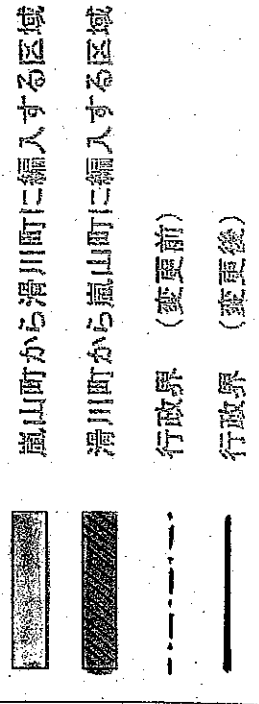 嵐山町から滑川町に編入する区域
滑川町から嵐山町に編入する区域
行政界 (変更前)
行政界 (変更後)